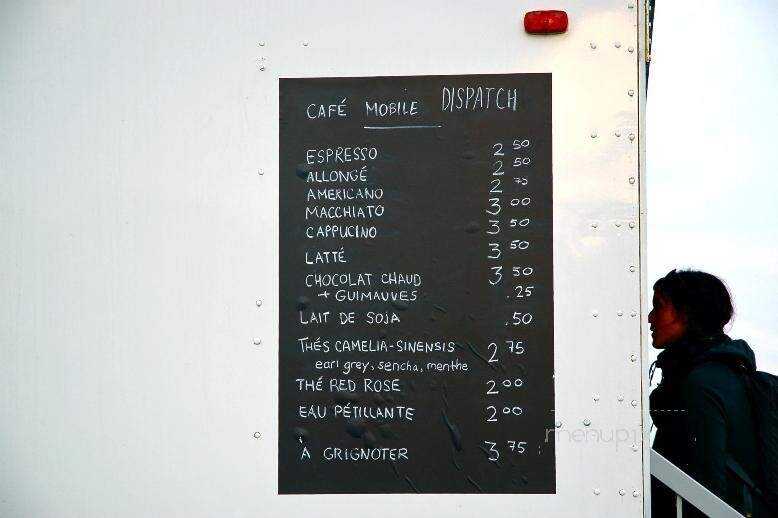 CAFÉ MOBILE DISPATCH
ESPRESSO 2 50
ALLONGÉ 2 50
AMERICANO 2 75
MACCHIATO 3 00
CAPPUCINO 3 50
LATTÉ 3 50
CHOCOLAT CHAUD 3 50
+ GUIMAUVES .25
LAIT DE SOJA .50
THÉS CAMELIA-SINENSIS 2 75
earl grey, sencha, menthe
THÉ RED ROSE 2 00
EAU PÉTILLANTE 2 00
À GRIGNOTER 3 75